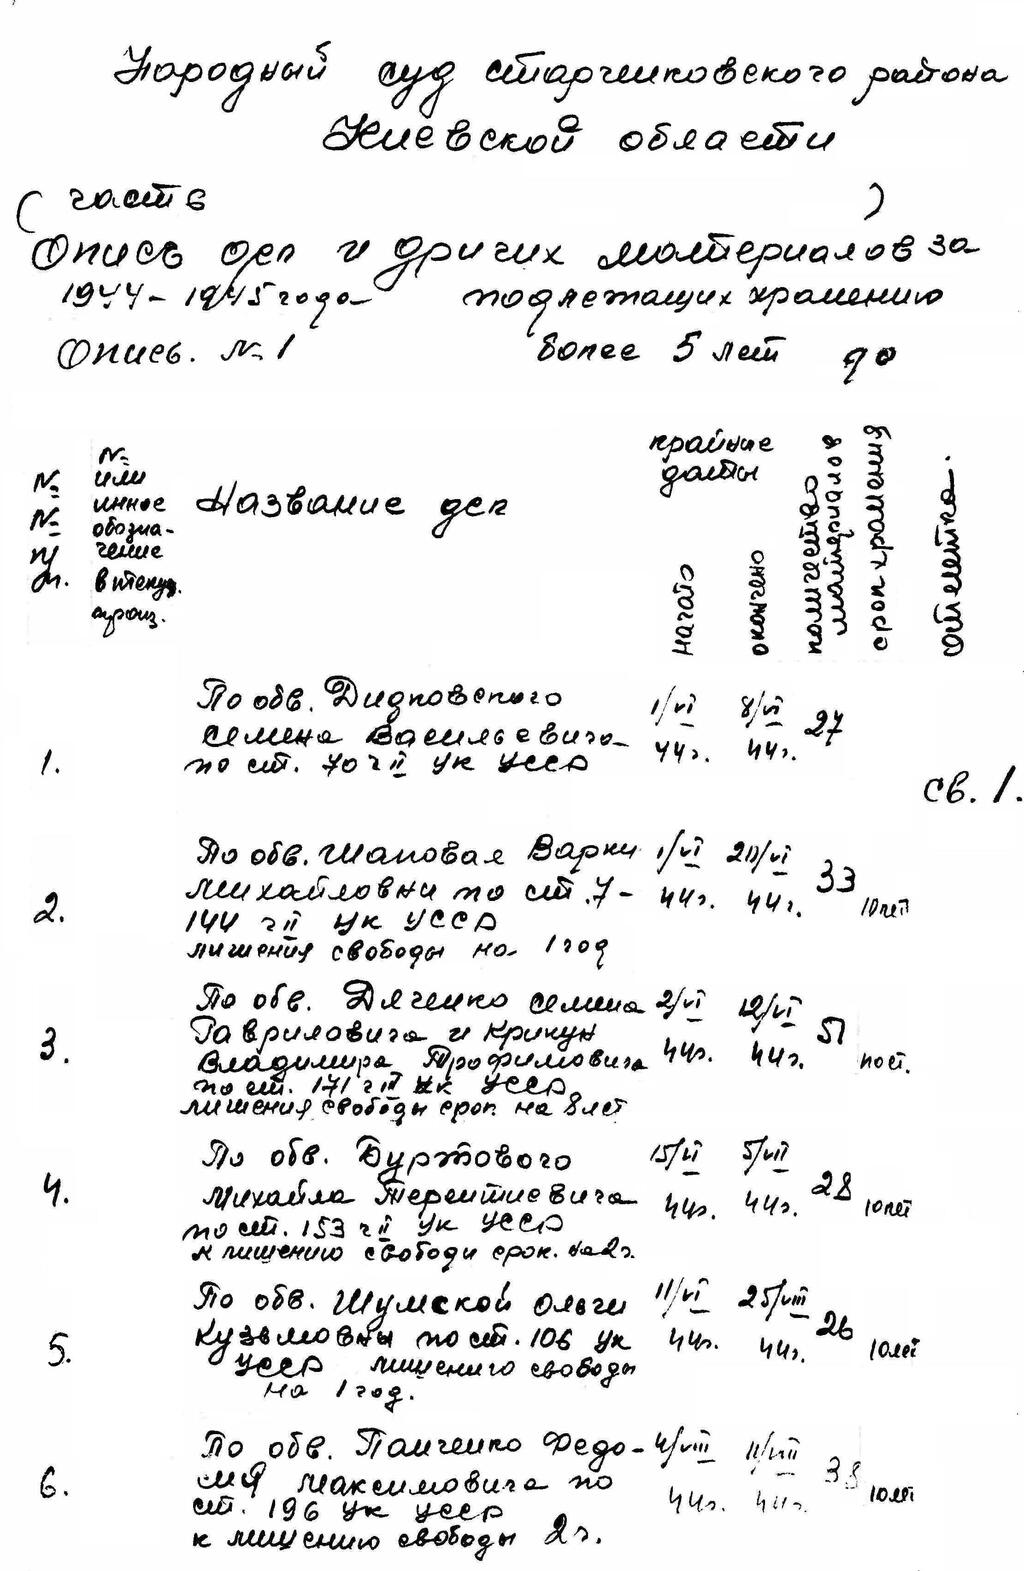 Народный суд старченковского района
Киевской области
( часть )
Опись дел и других материалов за
1944-1945 года подлежащих хранению
Опись. №1 более 5 лет до
№ № п/п.
№ или инное обозна-
чение
в текущ.
произ.
Название дел
крайние
даты
начато
окончено
количество
материалов
срок хранения
отметка.
1.
По обв. Дидковского
Семена Васильевича
по ст. 70 ч II УК УССР
1/VI 44г.
8/VI 44г.
27
св. 1.
2.
По обв. Шаповая Варки
Михайловни по ст. 7-
144 ч II УК УССР
лишения свободы на 1 год
1/VI 44г.
20/VI 44г.
33
10лет
3.
По обв. Дяченко Семена
Гавриловича и Крикун
Владимира Трофимовича
по ст. 171 ч III УК УССР
лишения свободы срок на 8 лет
2/VI 44г.
12/VI 44г.
51
пост.
4.
По обв. Буртового
Михайла Терентиевича
по ст. 153 ч II УК УССР
к лишению свободи срок. на 2г.
15/VI 44г.
5/VII 44г.
28
10лет
5.
По обв. Шумской Ольги
Кузьмовны по ст. 106 УК
УССР лишениго свободы
на 1 год.
11/VI 44г.
25/VIII 44г.
26
10лет
6.
По обв. Панченко Федо-
сия Максимовича по
ст. 196 УК УССР
к лишению свободы 2г.
4/VIII 44г.
11/VIII 44г.
38
10лет